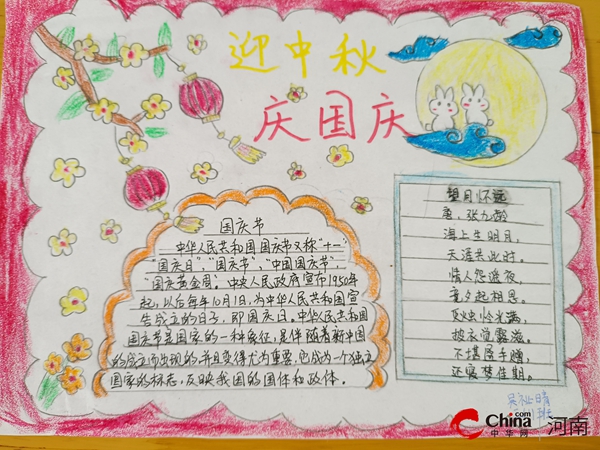 迎中秋
庆国庆
国庆节
中华人民共和国国庆节又称"十一"
"国庆日"、"国庆节"、"中国国庆节"、
国庆黄金周。中央人民政府宣布1950年
起,以后每年10月1日,为中华人民共和国宣
告成立的日子,即国庆日。中华人民共和国
国庆节是国家的一种象征,是伴随着新中国
的成立而出现的,并且变得尤为重要,也成为一个独立
国家的标志,反映我国的国体和政体。
望月怀远
唐,张九龄
海上生明月,
天涯共此时。
情人怨遥夜,
竟夕起相思。
灭烛怜光满,
披衣觉露滋。
不堪盈手赠,
还寝梦佳期。
China.com
中华网
河南